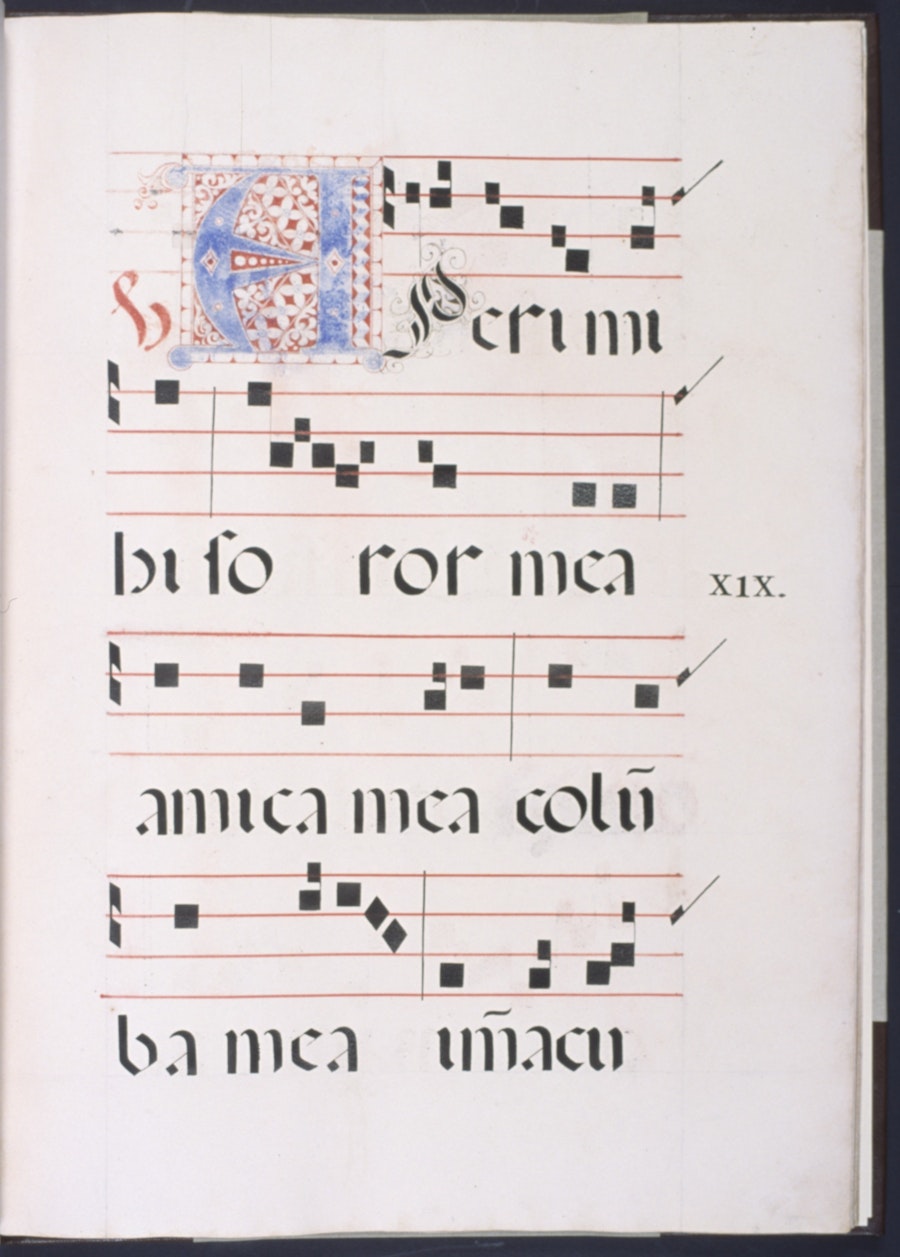 V APeri mi
hi ſo ror mea
XIX.
amica mea colū
ba mea im̄acu